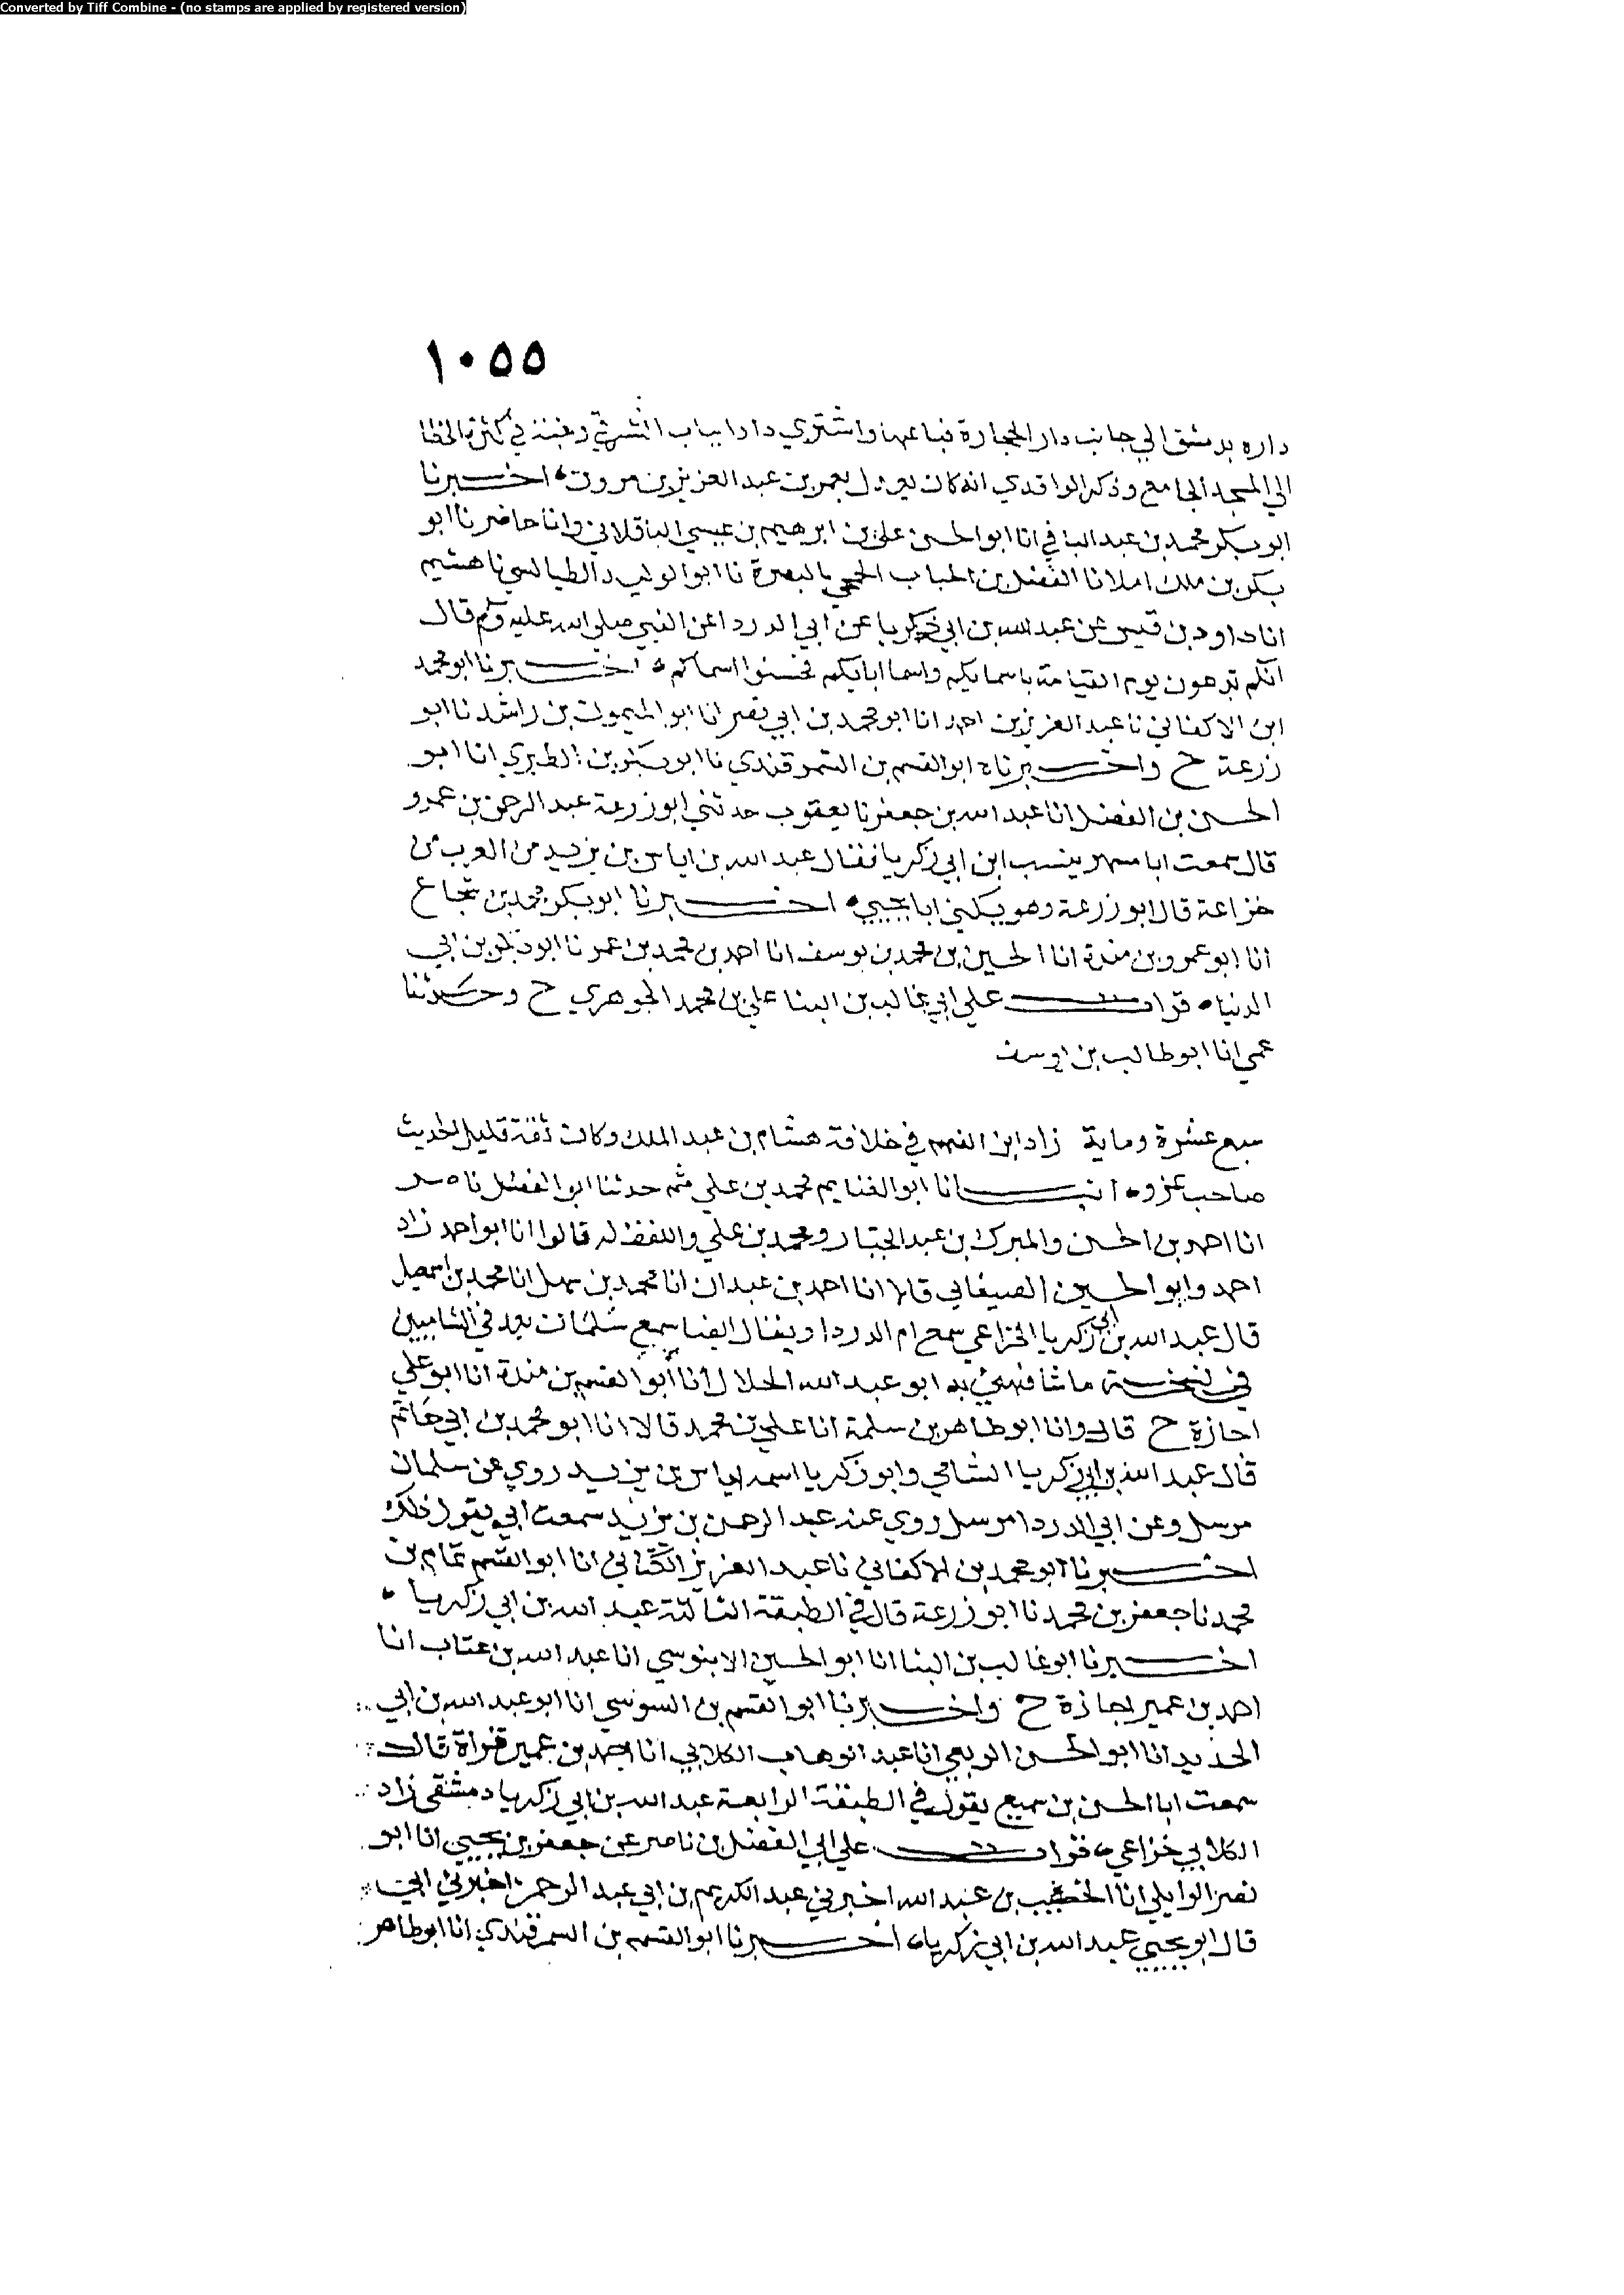 Converted by Tiff Combine - (no stamps are applied by registered version)
١٠٥٥
داره بدمشق الي جانب دار الحجارة فباعها واشتري دارا بباب الشرقي رغبة في كثرة الخطا
الي المسجد الجامع وذكر الواقدي انه كان يعدل بعمر بن عبد العزيز بن مروان اخبرنا
ابو بكر محمد بن عبد الباقي انا ابو الحسن علي بن ابرهيم بن عيسي الباقلاني وانا حاضر نا ابو
بكر بن ملك املا نا الفضل بن الحباب الجمحي بالبصرة نا ابو الوليد الطيالسي نا هشيم
انا داود بن قيس عن عبد الله بن ابي زكريا عن ابي الدردا عن النبي صلي الله عليه وسلم قال
انكم تدعون يوم القيامة باسمايكم واسما ابايكم فحسنوا اسماكم اخبرنا ابو محمد
ابن الاكفاني نا عبد العزيز بن احمد انا ابو محمد بن ابي نصر انا ابو الميمون بن راشد نا ابو
زرعة ح واخبرناه ابو القسم بن السمرقندي نا ابو بكر بن الطبري انا ابو
الحسين بن الفضل انا عبد الله بن جعفر نا يعقوب حدثني ابو زرعة عبد الرحمن بن عمرو
قال سمعت ابا مسهر ينسب ابن ابي زكريا فقال عبد الله بن اياس بن يزيد من العرب من
خزاعة قال ابو زرعة وهو يكني ابا يحيي اخبرنا ابو بكر محمد بن شجاع
انا ابو عمرو بن مندة انا الحسين بن محمد بن يوسف انا احمد بن محمد بن عمر نا ابو بكر بن ابي
الدنيا قرات علي ابي غالب بن البنا علي بن محمد الجوهري ح وحدثنا
عمي انا ابو طالب بن يوسف
سبع عشرة وماية زاد ابن الفهم في خلافة هشام بن عبد الملك وكان ثقة قليل الحديث
صاحب غزو انبانا ابو الغنايم محمد بن علي ثم حدثنا ابو الفضل ناصر
انا احمد بن الحسن والمبرك بن عبد الجبار ومحمد بن علي واللفظ له قالوا انا ابو احمد زاد
احمد وابو الحسين الصبغاني قالا انا احمد بن عبدان انا محمد بن سهل انا محمد بن اسمعيل
قال عبد الله بن ابي زكريا الخزاعي سمع ام الدردا ويقال ايضا سمع سلمان يعد في الشاميين
في نسخة ما شافهني به ابو عبد الله الخلال انا ابو القسم بن مندة انا ابو علي
اجازة ح قال وانا ابو طاهر بن سلمة انا علي بن محمد قالا انا ابو محمد بن ابي حاتم
قال عبد الله بن ابي زكريا الشامي وابو زكريا اسمه اياس بن يزيد روي عن سلمان
مرسل وعن ابي الدردا مرسل روي عنه عبد الرحمن بن يزيد سمعت ابي يقول ذلك
اخبرنا ابو محمد بن الاكفاني نا عبد العزيز الكتاني انا ابو القسم تمام بن
محمد نا جعفر بن محمد نا ابو زرعة قال في الطبقة الثالثة عبد الله بن ابي زكريا
اخبرنا ابو غالب بن البنا انا ابو الحسين الابنوسي انا عبد الله بن عتاب انا
احمد بن عمير اجازة ح واخبرنا ابو القسم بن السوسي انا ابو عبد الله بن ابي
الحديد انا ابو الحسن الربعي انا عبد الوهاب الكلابي انا احمد بن عمير قراة قال
سمعت ابا الحسن بن سميع يقول في الطبقة الرابعة عبد الله بن ابي زكريا دمشقي زاد
الكلابي خزاعي قرات علي ابي الفضل بن ناصر عن جعفر بن يحيي انا ابو
نصر الوايلي انا الخصيب بن عبد الله اخبرني عبد الكريم بن ابي عبد الرحمن اخبرني ابي
قال ابو يحيي عبد الله بن ابي زكريا اخبرنا ابو القسم بن السمرقندي انا ابو طاهر